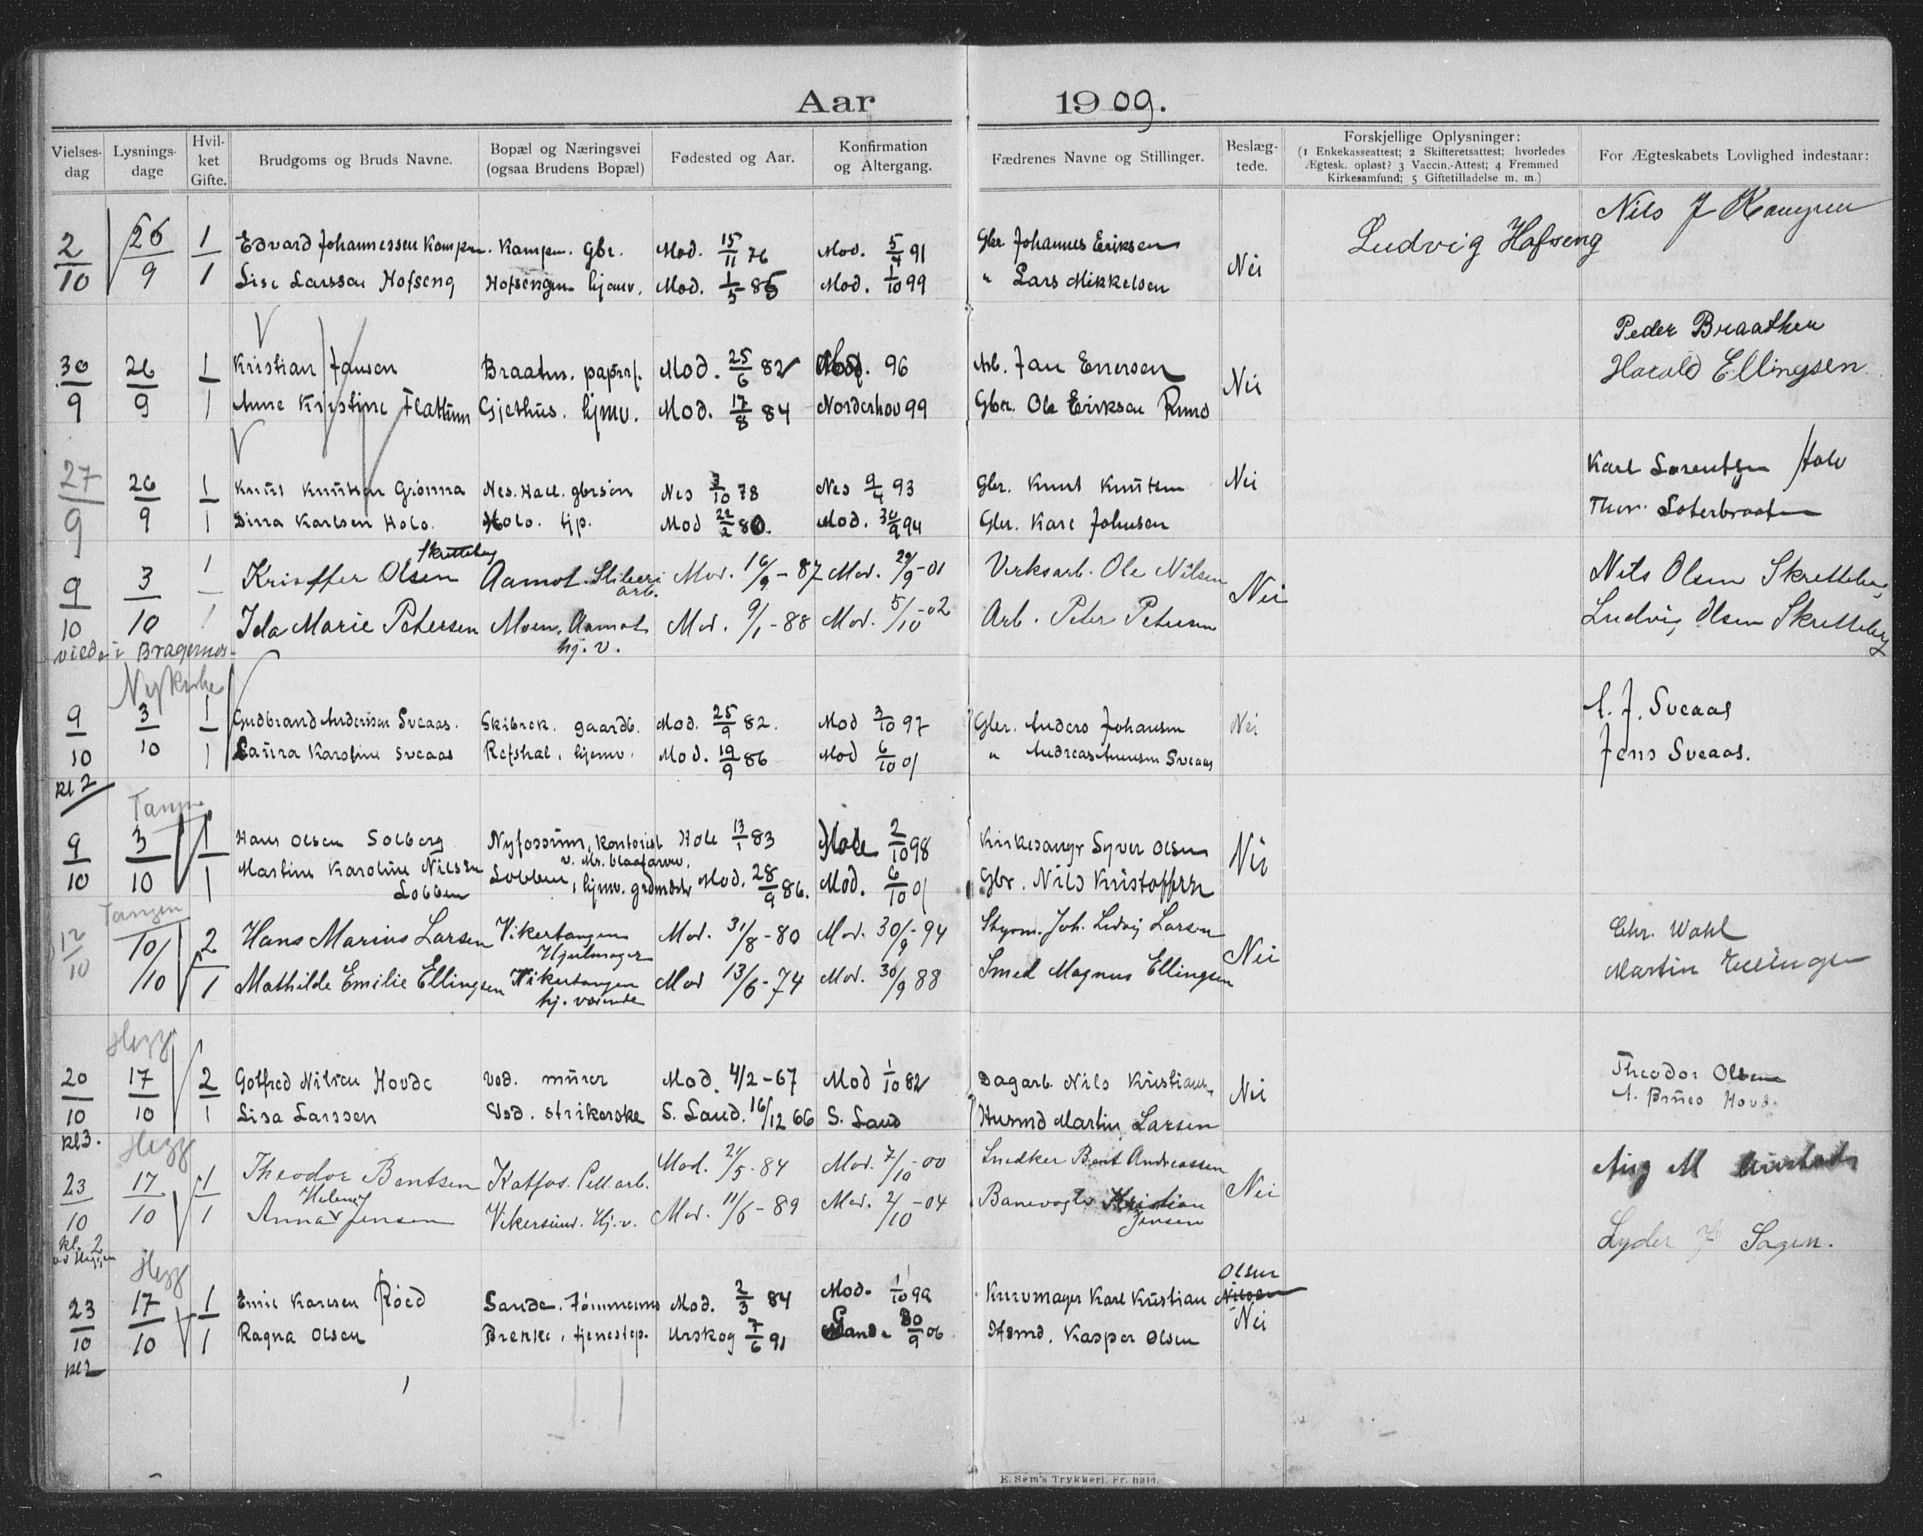 Aar 1909.
Vielses-dag Lysnings-dage Hvil-ket Gifte. Brudgoms og Bruds Navne. Bopæl og Næringsvei (ogsaa Brudens Bopæl) Fødested og Aar. Konfirmation og Altergang. Fædrenes Navne og Stillinger. Beslæg-tede. Forskjellige Oplysninger: (1 Enkekasseattest; 2 Skifteretsattest; hvorledes Ægtesk. opløst? 3 Vaccin.-Attest; 4 Fremmed Kirkesamfund; 5 Giftetilladelse m. m.) For Ægteskabets Lovlighed indestaar:
2/10 26/9 1 Edvard Johannessen Kampen. Kampen. Gbr. Mod. 15/11 76 Mod. 5/4 91 Gbr Johannes Eriksen Nei Ludvig Hofseng Nils J
1 Lise Larsson Hofseng Hofsengen hjemv. Mod. 1/5 85 Mod. 1/10 99 " Lars Mikkelsen
30/9 26/9 1 Kristian Jansen Braaten. Mod. 25/6 82 Mod. 96 Arb. Jan Enersen Nei Peder Braathen
1 Anne Kristine Flattum Gjethus. hjmv. Mod. 17/8 84 Norderhov 99 Gbr. Ole Eriksen Rund Harald Ellingsen
27/9 26/9 1 Knut Knutsen Grønna Nes. Hall. gbrsøn Nes 3/10 78 Nes 9/4 93 Gbr. Knut Knutsen Nei Karl Lorentzen Holo
1 Dina Karlsen Holo. Holo. tjp. Mod 22/2 80. Mod. 30/9 94 Gbr. Karl Johnsen Thor.
9/10 3/10 1 Kristoffer Olsen Skretteberg Aamot. Sliberiarb. Mod. 16/9-87 Mod. 29/9-01 Verksarb. Ole Nilsen Nei Nils Olsen Skretteberg
1 Ida Marie Petersen Moen, Aamot hj. v. Mod. 9/1-88 Mod. 5/10-02 Arb. Peter Petersen Ludvig Olsen Skretteberg
viede i Bragernes.
Nykirke
9/10 3/10 1 Gudbrand Andersen Sveaas. Skibrek. gaardb. Mod. 25/9 82. Mod 3/10 97 Gbr. Anders Johansen Nei A. J. Sveaas
1 Laura Karoline Sveaas Refshal, hjemv. Mod. 19/9 86 Mod 6/10 01 " Andreas Sveaas Jens Sveaas.
kl 2
Tangen
9/10 3/10 1 Hans Olsen Solberg Nyfossum, kontorist v. Mo. Blaafarvev. Hole 13/1 83 Hole 2/10 98 Kirkesangr Syver Olsen Nei
1 Martine Karoline Nilssen Lobben Lobben, hjemv. Mod. 28/9 86. Mod. 6/10 01 Gbr. Nils Kristoffersen
Tangen
12/10 10/10 2 Hans Marius Larsen Vikertangen Hjulmager Mod. 31/8-80 Mod. 30/9-94 Styrm. Joh. Ludvig Larsen Nei Chr. Wahl
1 Mathilde Emilie Ellingsen Vikertangen hj. værende Mod 13/6-74 Mod. 30/9 88 Smed Magnus Ellingsen Martin Ellingsen
Hegg
20/10 17/10 2 Gotfred Nilsen Hovde Ved. murer Mod. 4/2-67 Mod 1/10 82 Dagarb. Nils Kristiansen Nei Theodor Olsen
1 Lisa Larssen Ved. strikerske S. Land. 16/12 66 S. Land Husmd Martin Larsen
kl 3.
Hegg
23/10 17/10 1 Theodor Bentsen Katfos. Cell. arb. Mod. 21/5-84 Mod. 7/10-00 Snedker Bent Andreassen Nei Aug M
1 Anna Helene Jensen Vikersund. Hj. v. Mod. 11/6-89 Mod. 2/10-04 Banevogter Kristian Jensen Lyder Sagen.
kl. 2
Hegg
23/10 17/10 1 Emil Karlsen Røed Sande. Tømmermd Mod. 2/3 84 Mod. 1/10 99 Kurvmager Karl Kristian Nilsen Olsen Nei
1 Ragna Olsen Brekke, tjenestep. Urskog 7/6 91 Sande 30/9 06 Hsmd. Kasper Olsen
kl 2
E. Sem's Trykkeri, Fr. hald.